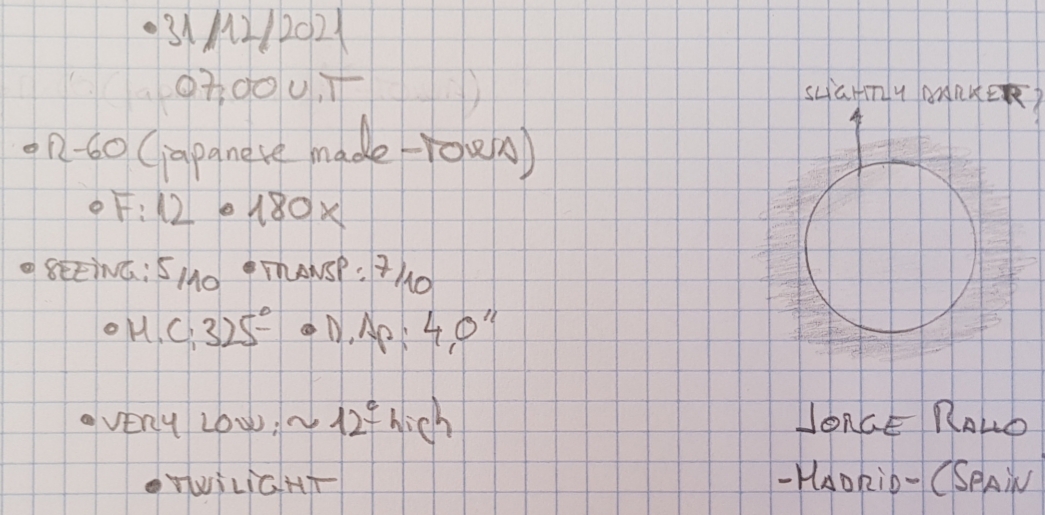 •31/12/2021
07:00 U.T
•R-60 (japanese made - TOWA)
•F:12 •180x
•SEEING: 5/10 •TRANSP: 7/10
•M.C: 325º •D.Ap: 4,0"
•VERY LOW: ~12º high
•TWILIGHT
SLIGHTLY DARKER?
JORGE
-MADRID- (SPAIN